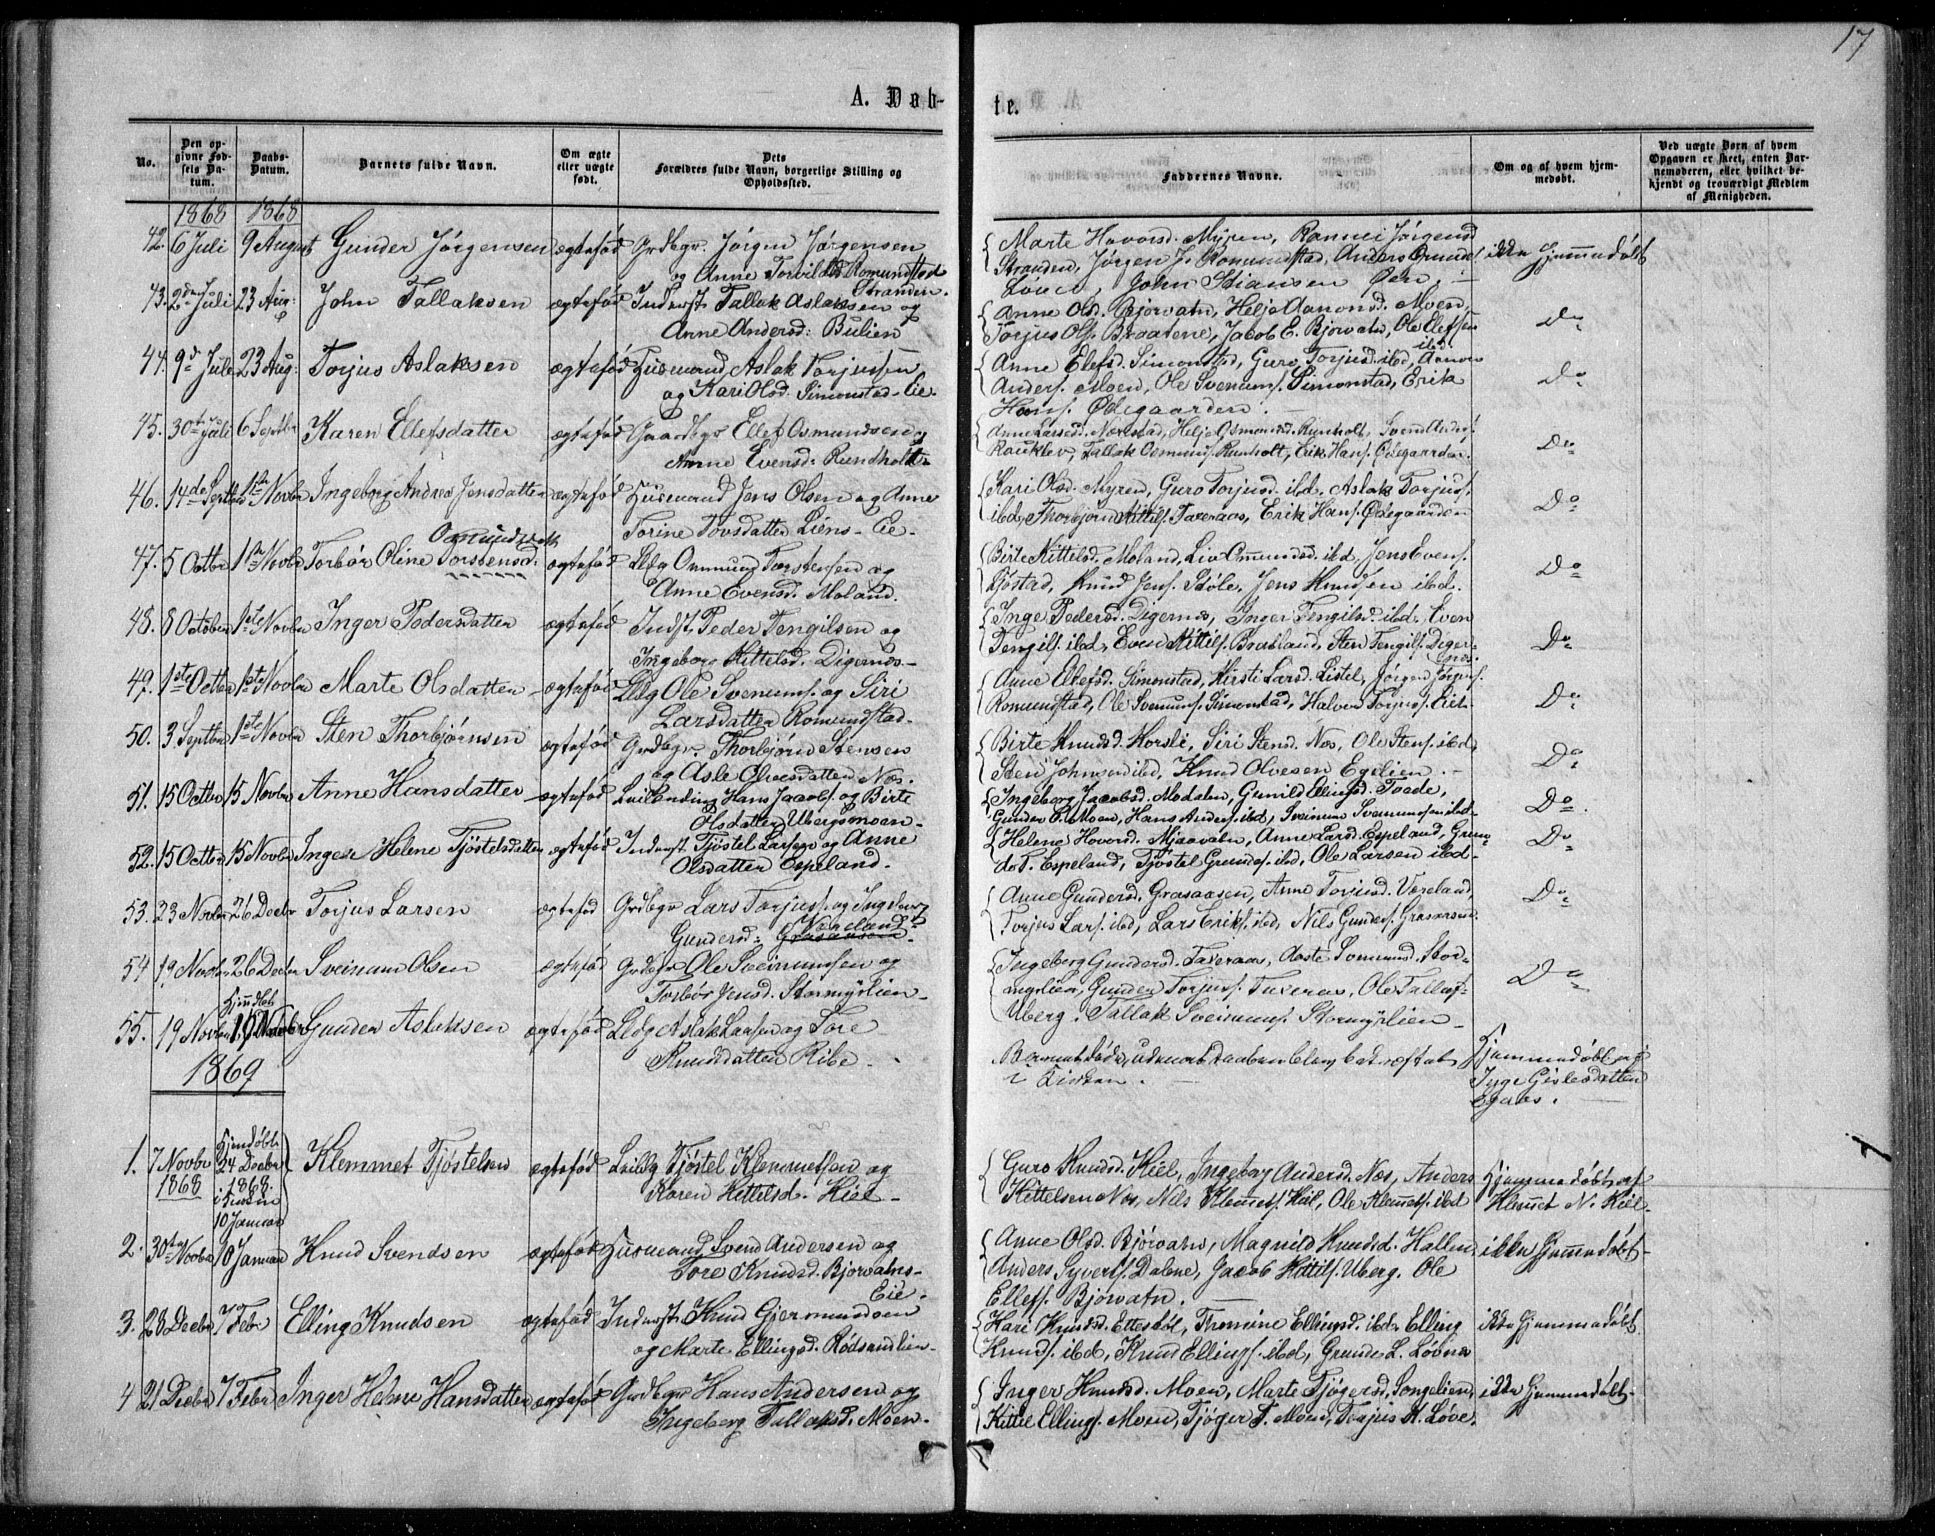 17
A. Døb-
te.
No.
Den opgivne Fødsels Datum.
Daabs-Datum.
Barnets fulde Navn.
Om ægte eller uægte født.
Dets Forældres fulde Navn, borgerlige Stilling og Opholdssted.
Faddernes Navne.
Om og af hvem hjemmedøbt.
Ved uægte Børn af hvem Opgaven er skeet, enten Barnemoderen, eller hvilket bekjendt og troværdigt Medlem af Menigheden.
1868 1868
42. 6 Juli 9 August Gunder Jørgensen ægtefød Grdbgr. Jørgen Jørgensen
og Anne Torvildsd. Romundstad
Stranden.
Marte Hovorsd. Myren, Rannei Jørgensd
Stranden, Jørgen J. Romundstad, Anders
John Stiansen Øen.
ikke hjemmedøbt
43. 2den Juli 23 Aug: John Tallaksen ægtefød Inderst Tallak Aslaksen og
Anne Andersd: Bulien
Anne Olsd. Bjorvatn, Helje Aamonsd. Moen,
Torjus Ols. Braatene, Jacob E. Bjorvatn, Ole Elefsen
ibd.
Do
44. 9de Juli 23 Aug: Torjus Aslaksen ægtefød Husmand Aslak Torjussen
og Kari Olsd. Simonstad-Eie.
Anne Elefsd. Simonstad, Guro Torjusd. ibd, Aamon
Anders. Moen, Ole Svenums. Simonstad, Erik
Hans. Ødegaarden.
Do
45. 30te Juli 6 Septbr Karen Ellefsdatter ægtefød Gaardbgr Ellef Osmundsen og
Anne Evensd: Rundholt
Anne Larsd. Nævestad, Helje Osmondsd. Runholt, Svend Anders.
Rauklev, Tallak Osmuns. Runholt, Erik Hans. Ødegaarden.
Do
46. 14de Septbr 1ste Novbr Ingeborg Andrea Jensdatter ægtefød Husmand Jens Olsen og Anne
Torine Tovsdatter Liens-Eie.
Kari Olsd. Myren, Guro Torjusd. ibd. Aslak Torjus.
ibd, Thorbjørn Kittils. Taxeraas, Erik Hans. Ødegaarden
Do
Osmundsdatter
47. 5 Octbr 1ste Novbr Torbør Oline Torstensd. ægtefød Ldg Ommund Torstensen og
Anne Evensd. Moland.
Birte Kittilsd. Moland, Liv Omundsd. ibd. Jens Evens.
Knud Jens. Støle, Jens Knudsen ibd.
Do
48. 8 October 1ste Novbr Inger Pedersdatter ægtefød Indst. Peder Tengilsen og
Ingeborg Kittelsd. Digernes-
Inge Pedersd. Digernes, Inger Tengilsd. ibd. Even
Tengils. ibd, Even Kittils. Braaland, Sten Tengils. Diger-
nes.
Do
49. 1ste Octbr 1ste Novbr Marte Olsdatter ægtefød Ldg Ole Svenums. og Siri
Larsdatter Romundstad-
Anne Elefsd. Simonstad, Kirsti Larsd. Listel, Jørgen Jørgens.
Romundstad, Ole Svenums. Simonstad, Halvor Torjus. Eiet.
Do
50. 3 Septbr 1ste Novbr Sten Thorbjørnsen ægtefød Grdbgr Thorbjørn Stensen
og Asle Olvesdatter Næs.
Birte Knudsd. Horsli, Siri Stensd. Næs, Ole Stens. ibd,
Sten Johnsen ibd, Knud Olvesen Egelien.
Do
51. 15 Octbr 15 Novbr Anne Hansdatter ægtefød Leilending Hans Jacobs. og Birte
Olsdatter Ubergsmoen-
Ingeborg Jacobsd. Modalen, Gunild Ellingsd. Toade,
Gunder S. Moen, Hans Anders. ibd, Sveinum Svenumsen ibd
Do.
52. 15 Octbr 15 Novbr Inger Helene Tjøstelsdatter ægtefød Inderst Tjøstel Larsen og Anne
Olsdatter Espeland.
Helene Hovorsd. Mjaavatn, Anne Larsd. Espeland, Grun-
de T. Espeland, Tjøstel Grundes. ibd, Ole Larsen ibd-
Do
53. 23 Novbr 26 Decbr Torjus Larsen ægtefød Grdbgr Lars Torjus. og Ingeborg
Gundersd: Vareland.
Anne Gundersd. Grasaasen, Anne Torjusd. Voreland,
Torjus Lars. ibd, Lars Eriks. ibd, Nils Gunders. Grasaasen.
Do
54 19 Novbr 26 Decbr Sveinum Olsen ægtefød Grdbgr Ole Sveinumsen og
Torbør Jensd. Stormyrlien-
Ingeborg Gundersd. Taxeraas, Aaste Svenumsd. Stor-
myrlien, Gunder Torjus. Taxeraas, Ole Tallaks.
Uberg. Tallak Sveinums. Stormyrlien-
Do
55. 19 Novbr Hjmdbt 19 Novbr Gunder Aslaksen ægtefød Ldg Aslak Larsen og Tore
Knudsdatter Ribe.
Barnet døde, uden at Daaben blev bekræftet
i Kirken.
Hjemmedøbt af
Inge Gislesdatter
Egaas.
1869
1. 7 Novbr 1868 Hjmdøbt 24 Decbr 1868. i Kirken 10 Januar Klemmet Tjøstelsen ægtefød Leildg Tjøstel Klemmetsen og
Karen Kittelsd. Kiel-
Guro Knudsd. Kiel, Ingeborg Andersd. Næs, Anders
Kittelsen Næs, Nils Klemets. Kiel, Ole Klemets. ibd
Hjemmedøbt af
Klemmet N. Kiel-
2. 30te Novbr 10 Januar Knud Svendsen ægtefød Husmand Svend Andersen og
Tore Knudsd. Bjorvatns-
Eie.
Anne Olsd. Bjorvatn, Magnild Knudsd. Hallen,
Anders Syverts. Dalene, Jacob Kittils. Uberg. Ole
Ellefs. Bjorvatn.
ikke hjemmedøbt-
3. 28 Decbr 7 Febr Elling Knudsen ægtefød Inderst Knud Gjermundsen
og Marte Ellingsd. Rødsandlien-
Kari Knudsd. Ettestøl, Thomine Ellingsd. ibd. Elling
Knuds. ibd, Knud Ellings. ibd, Grunde L. Løvne
ikke hjemmedøbt
4 21 Decbr 7 Febr Inger Helene Hansdatter ægtefød Grdbgr Hans Andersen og
Ingeborg Tallaksd. Moen-
Inger Knudsd. Moen, Marte Tjøgersd. Songelien,
Kittil Ellings. Moen, Tjøger T. Moen, Torjus K. Løve.
ikke hjemmedøbt-